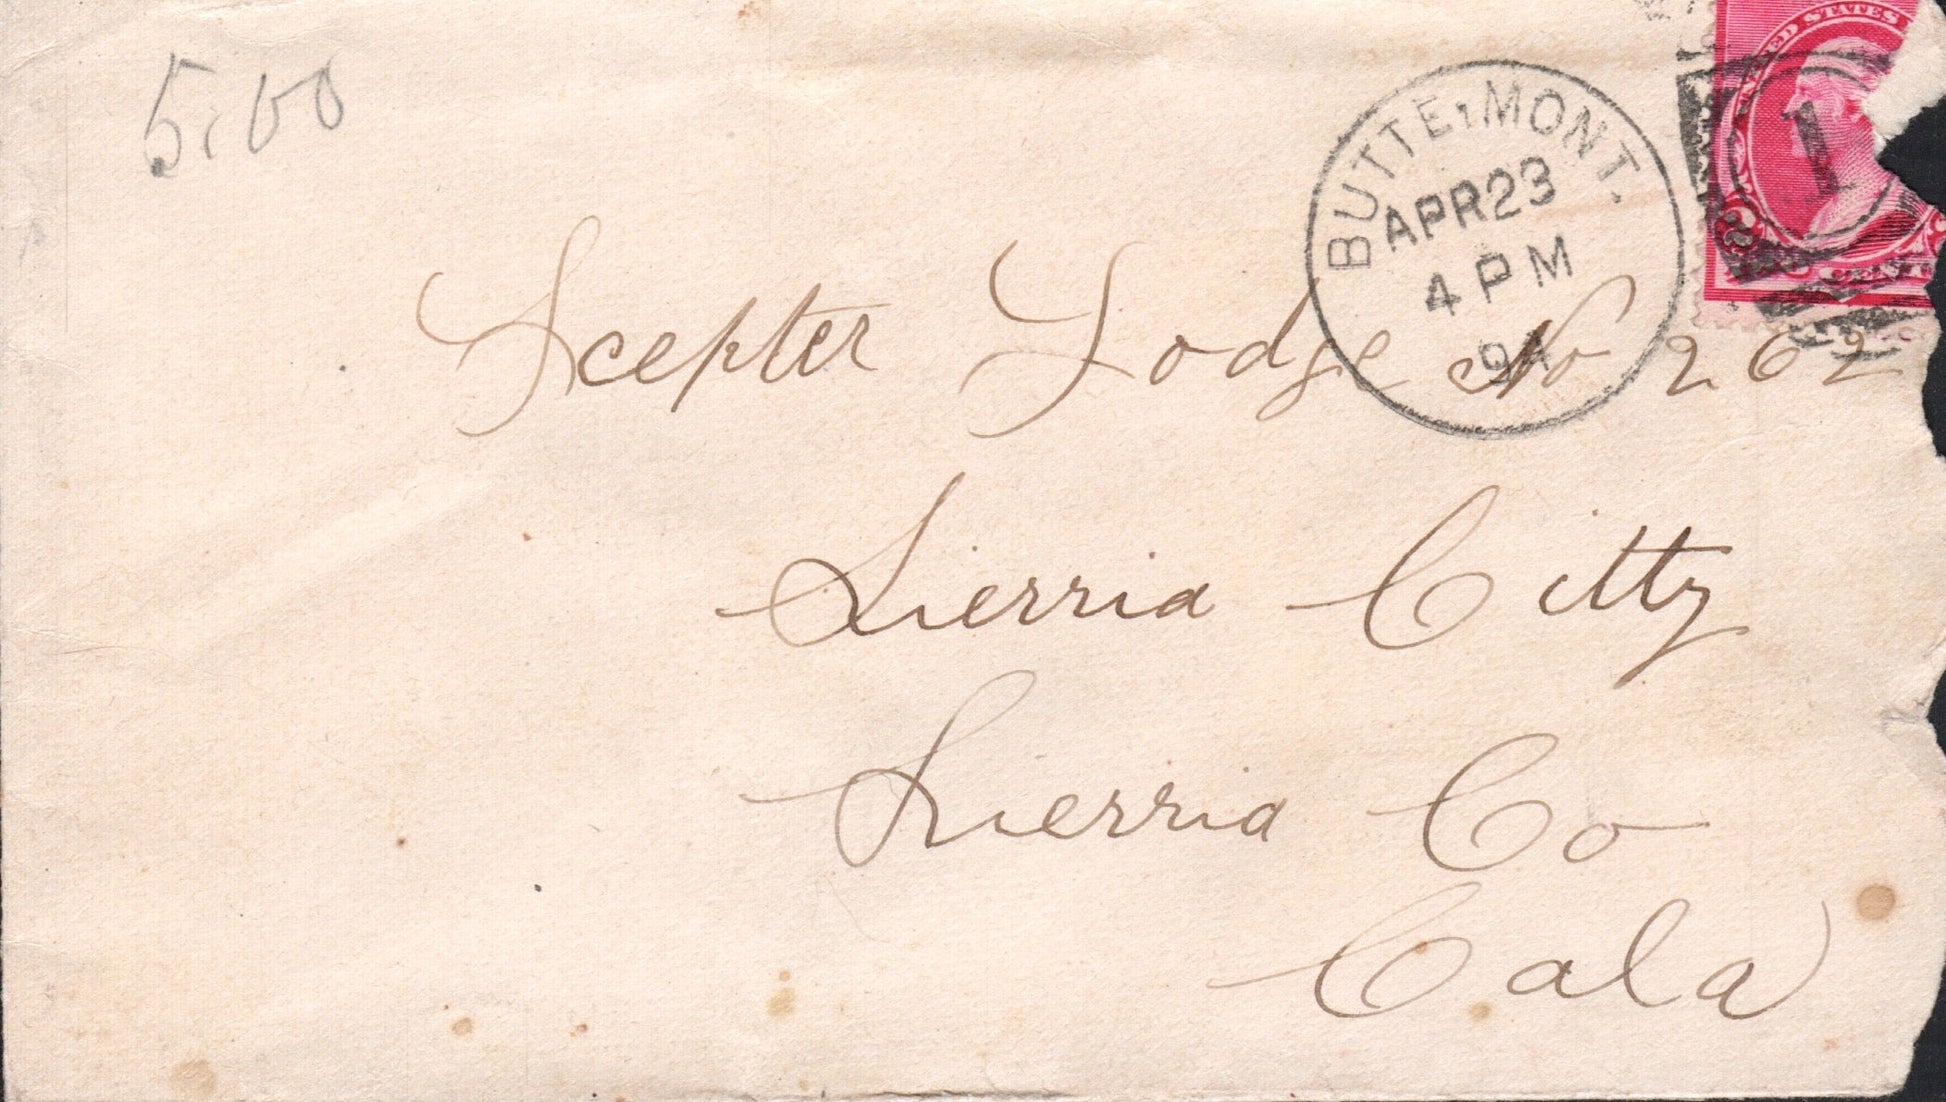 5.00
UNITED STATES
BUTTE, MONT.
APR 23
4 PM
1
Scepter Lodge No 262
Sierria Citty
Sierria Co
Cala